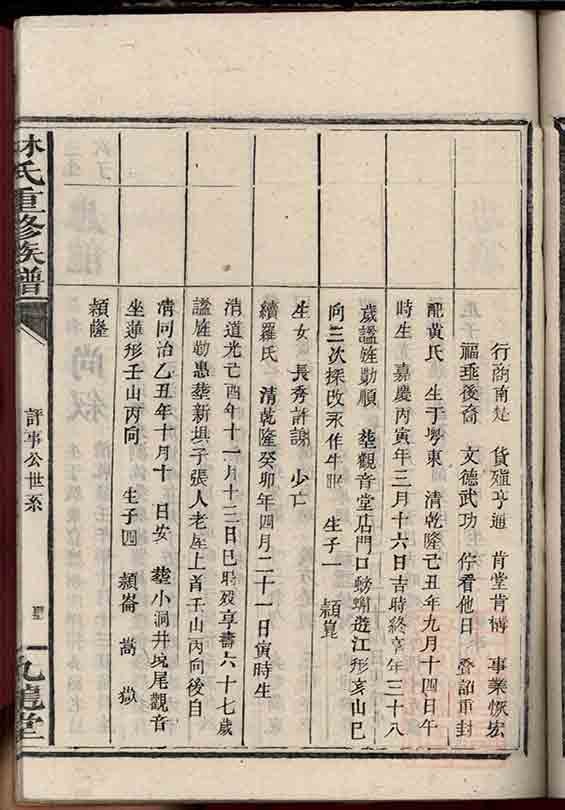 行商南楚　貨殖亨通　肯堂肯搆　事業恢宏
福垂後裔　文德武功　佇看他日　疊詔重封
配黃氏　生于粵東　清乾隆己丑年九月十四日午
時生　嘉慶丙寅年三月十六日吉時終享年三十八
歲謚姙勤順　葬觀音堂店門口螃蟹遊江形亥山巳
向三次採改永作牛眠　生子一　頴崑
生女　長秀許謝　少亡
續羅氏　清乾隆癸卯年四月二十一日寅時生
清道光己酉年十一月十三日巳時歿享壽六十七歲
謚姙勤惠葬新垻子張人老屋上首壬山丙向後自
清同治乙丑年十月十　日安　葬小洞井塆尾觀音
坐蓮形壬山丙向　生子四　頴崙　嵩　嶽
頴隆
林氏重修族譜
評事公世系
九龍堂